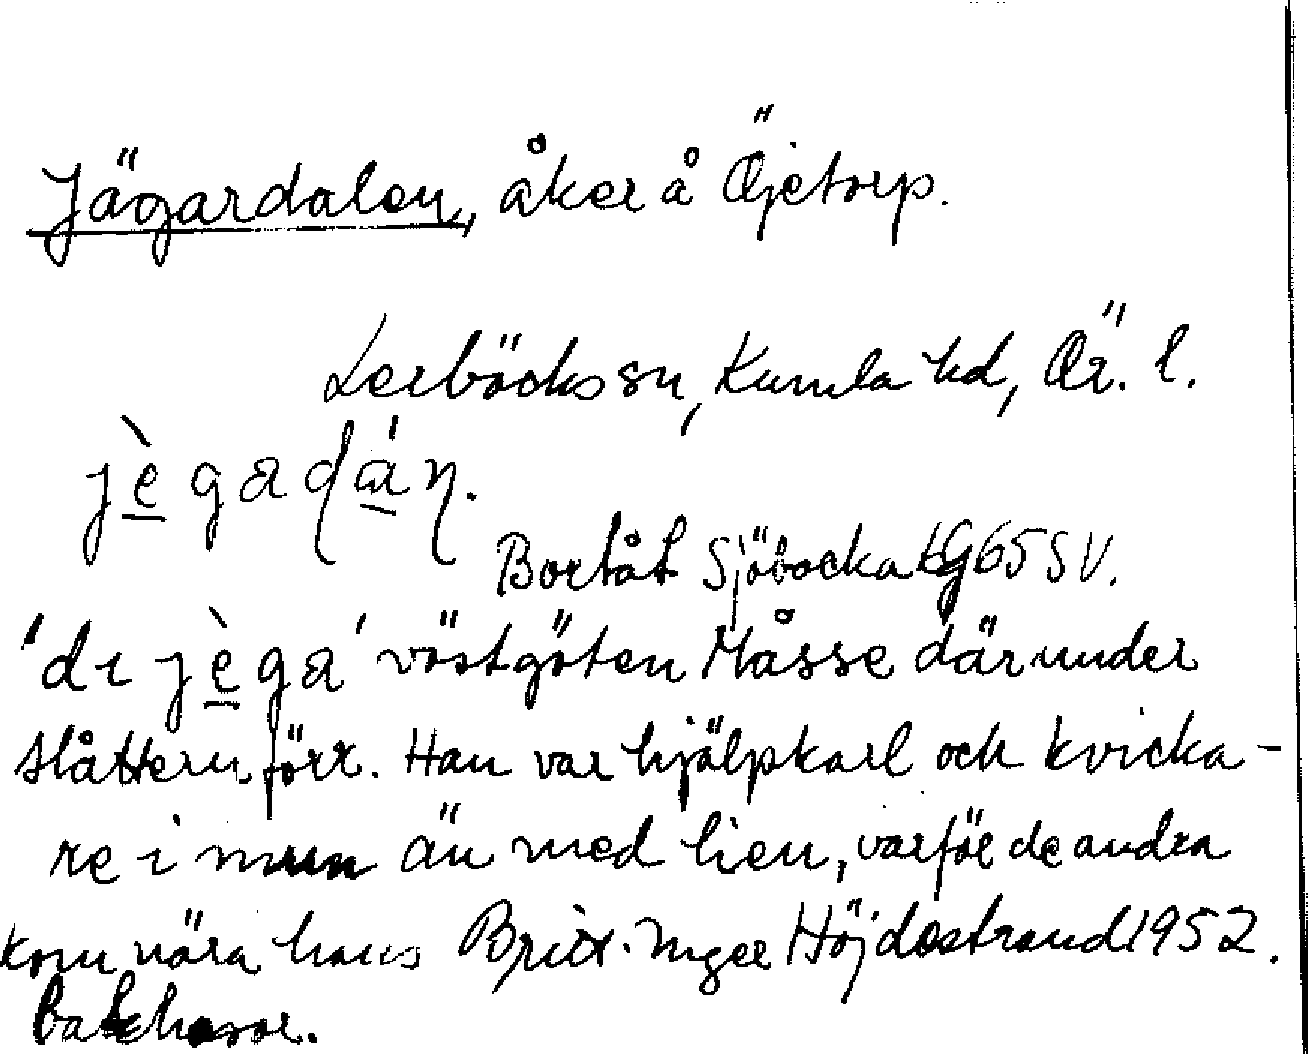 Jägardalen, åker å Öjetorp.
Lerbäcks sn, Kumla hd, Ör. l.
jègadán.
Bortåt Sjöbacka EG65 SV.
'di jèga' västgöten Måsse där under
slåttern förr. Han var hjälpkarl och kvicka-
re i mun än med lien, varför de andra
kom nära hans Britt-Inger Höjdestrand 1952.
bakhasor.